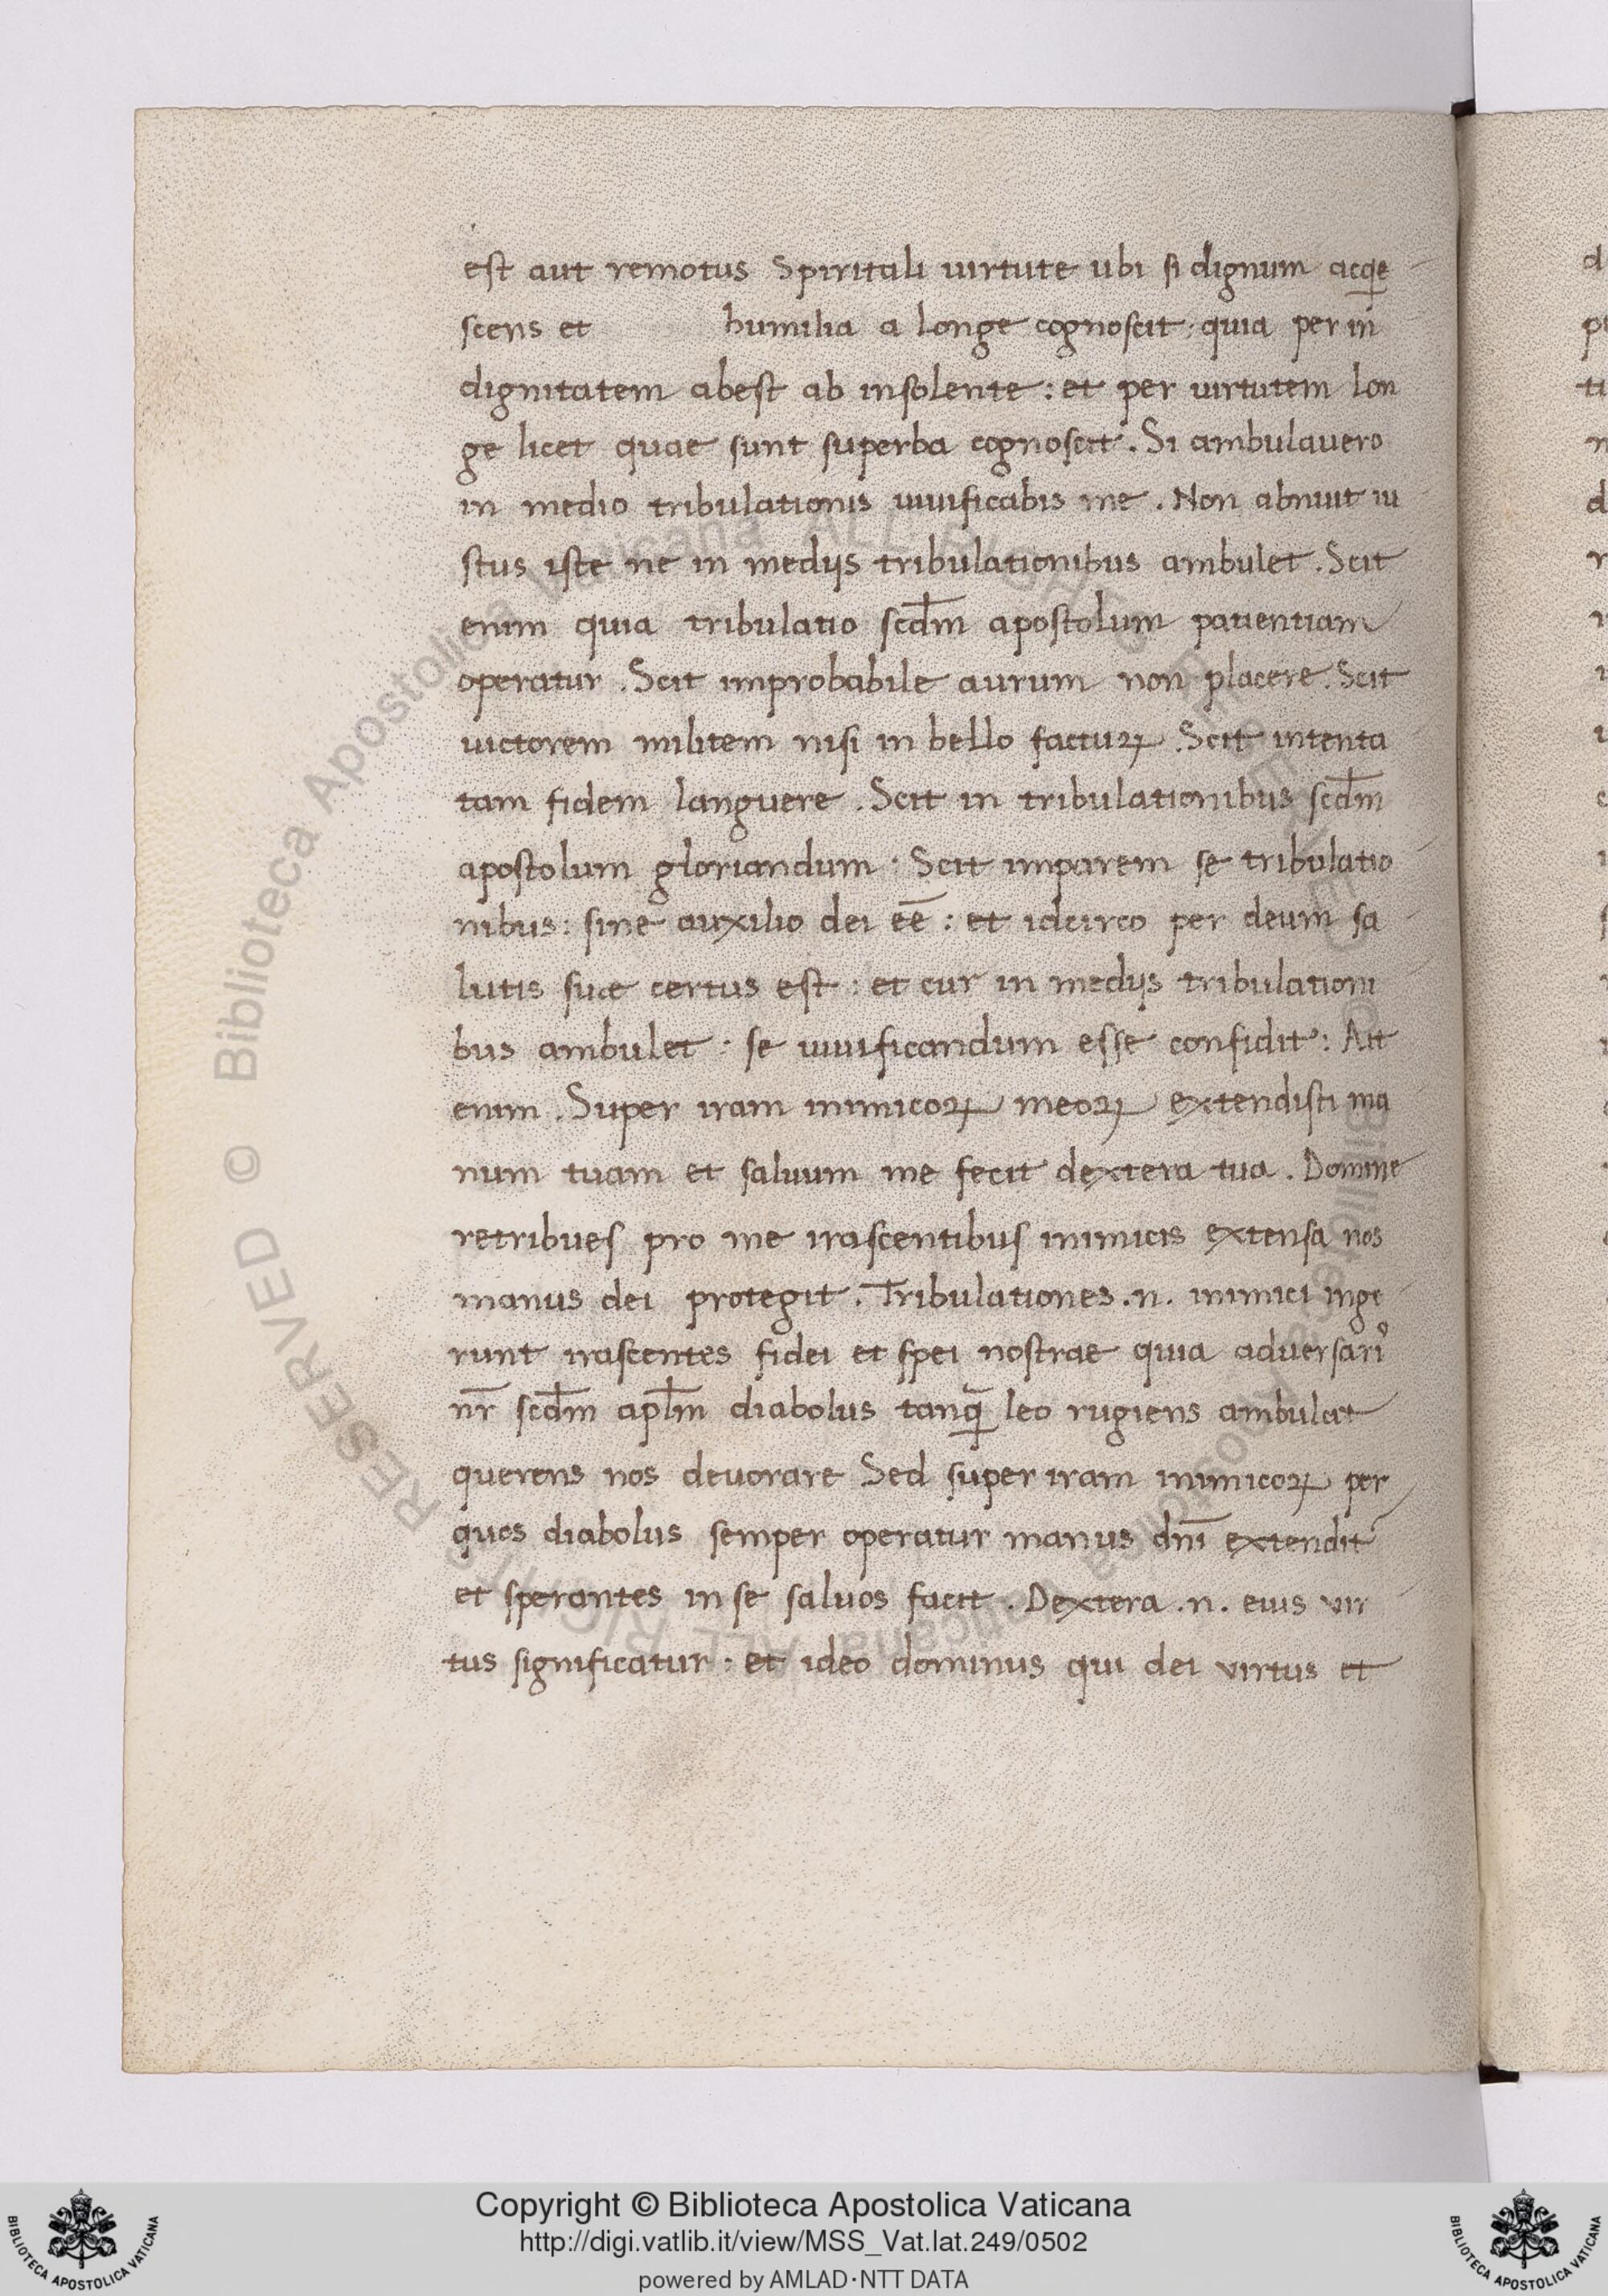 est aut remotus Spiritali uirtute ubi si dignum acq̱e
scens et humilia a longe cognoscit: quia per in
dignitatem abest ab insolente: et per uirtutem lon
ge licet quae sunt superba cognoscit. Si ambulauero
in medio tribulationis uiuificabis me. Non abnuit iu
stus iste ne in medijs tribulationibus ambulet. Scit
enim quia tribulatio scd̅m apostolum patientiam
operatur. Scit improbabile aurum non placere. Scit
uictorem militem nisi in bello factuꝝ. Scit intenta
tam fidem languere. Scit in tribulationibus scd̅m
apostolum gloriandum. Scit imparem se tribulatio
nibus: sine auxilio dei ee̅: et idcirco per deum sa
lutis suæ certus est: et cur in medijs tribulationi
bus ambulet: se uiuificandum esse confidit: Ait
enim. Super iram inimicoꝝ meoꝝ extendisti ma
num tuam et saluum me fecit dextera tua. Domine
retribues pro me irascentibus inimicis extensa nos
manus dei protegit. Tribulationes .n. inimici inge
runt irascentes fidei et spei nostrae quia aduersariꝰ
nr̅ scd̅m apl̅m diabolus tanq̱̃ leo rugiens ambulat
querens nos deuorare Sed super iram inimicoꝝ per
quos diabolus semper operatur manus dni̅ extendit
et sperantes in se saluos facit. Dextera .n. eius vir
tus significatur: et ideo dominus qui dei virtus et
© Biblioteca Apostolica Vaticana ALL RIGHTS RESERVED
Copyright © Biblioteca Apostolica Vaticana
http://digi.vatlib.it/view/MSS_Vat.lat.249/0502
powered by AMLAD·NTT DATA
BIBLIOTECA APOSTOLICA VATICANA
BIBLIOTECA APOSTOLICA VATICANA